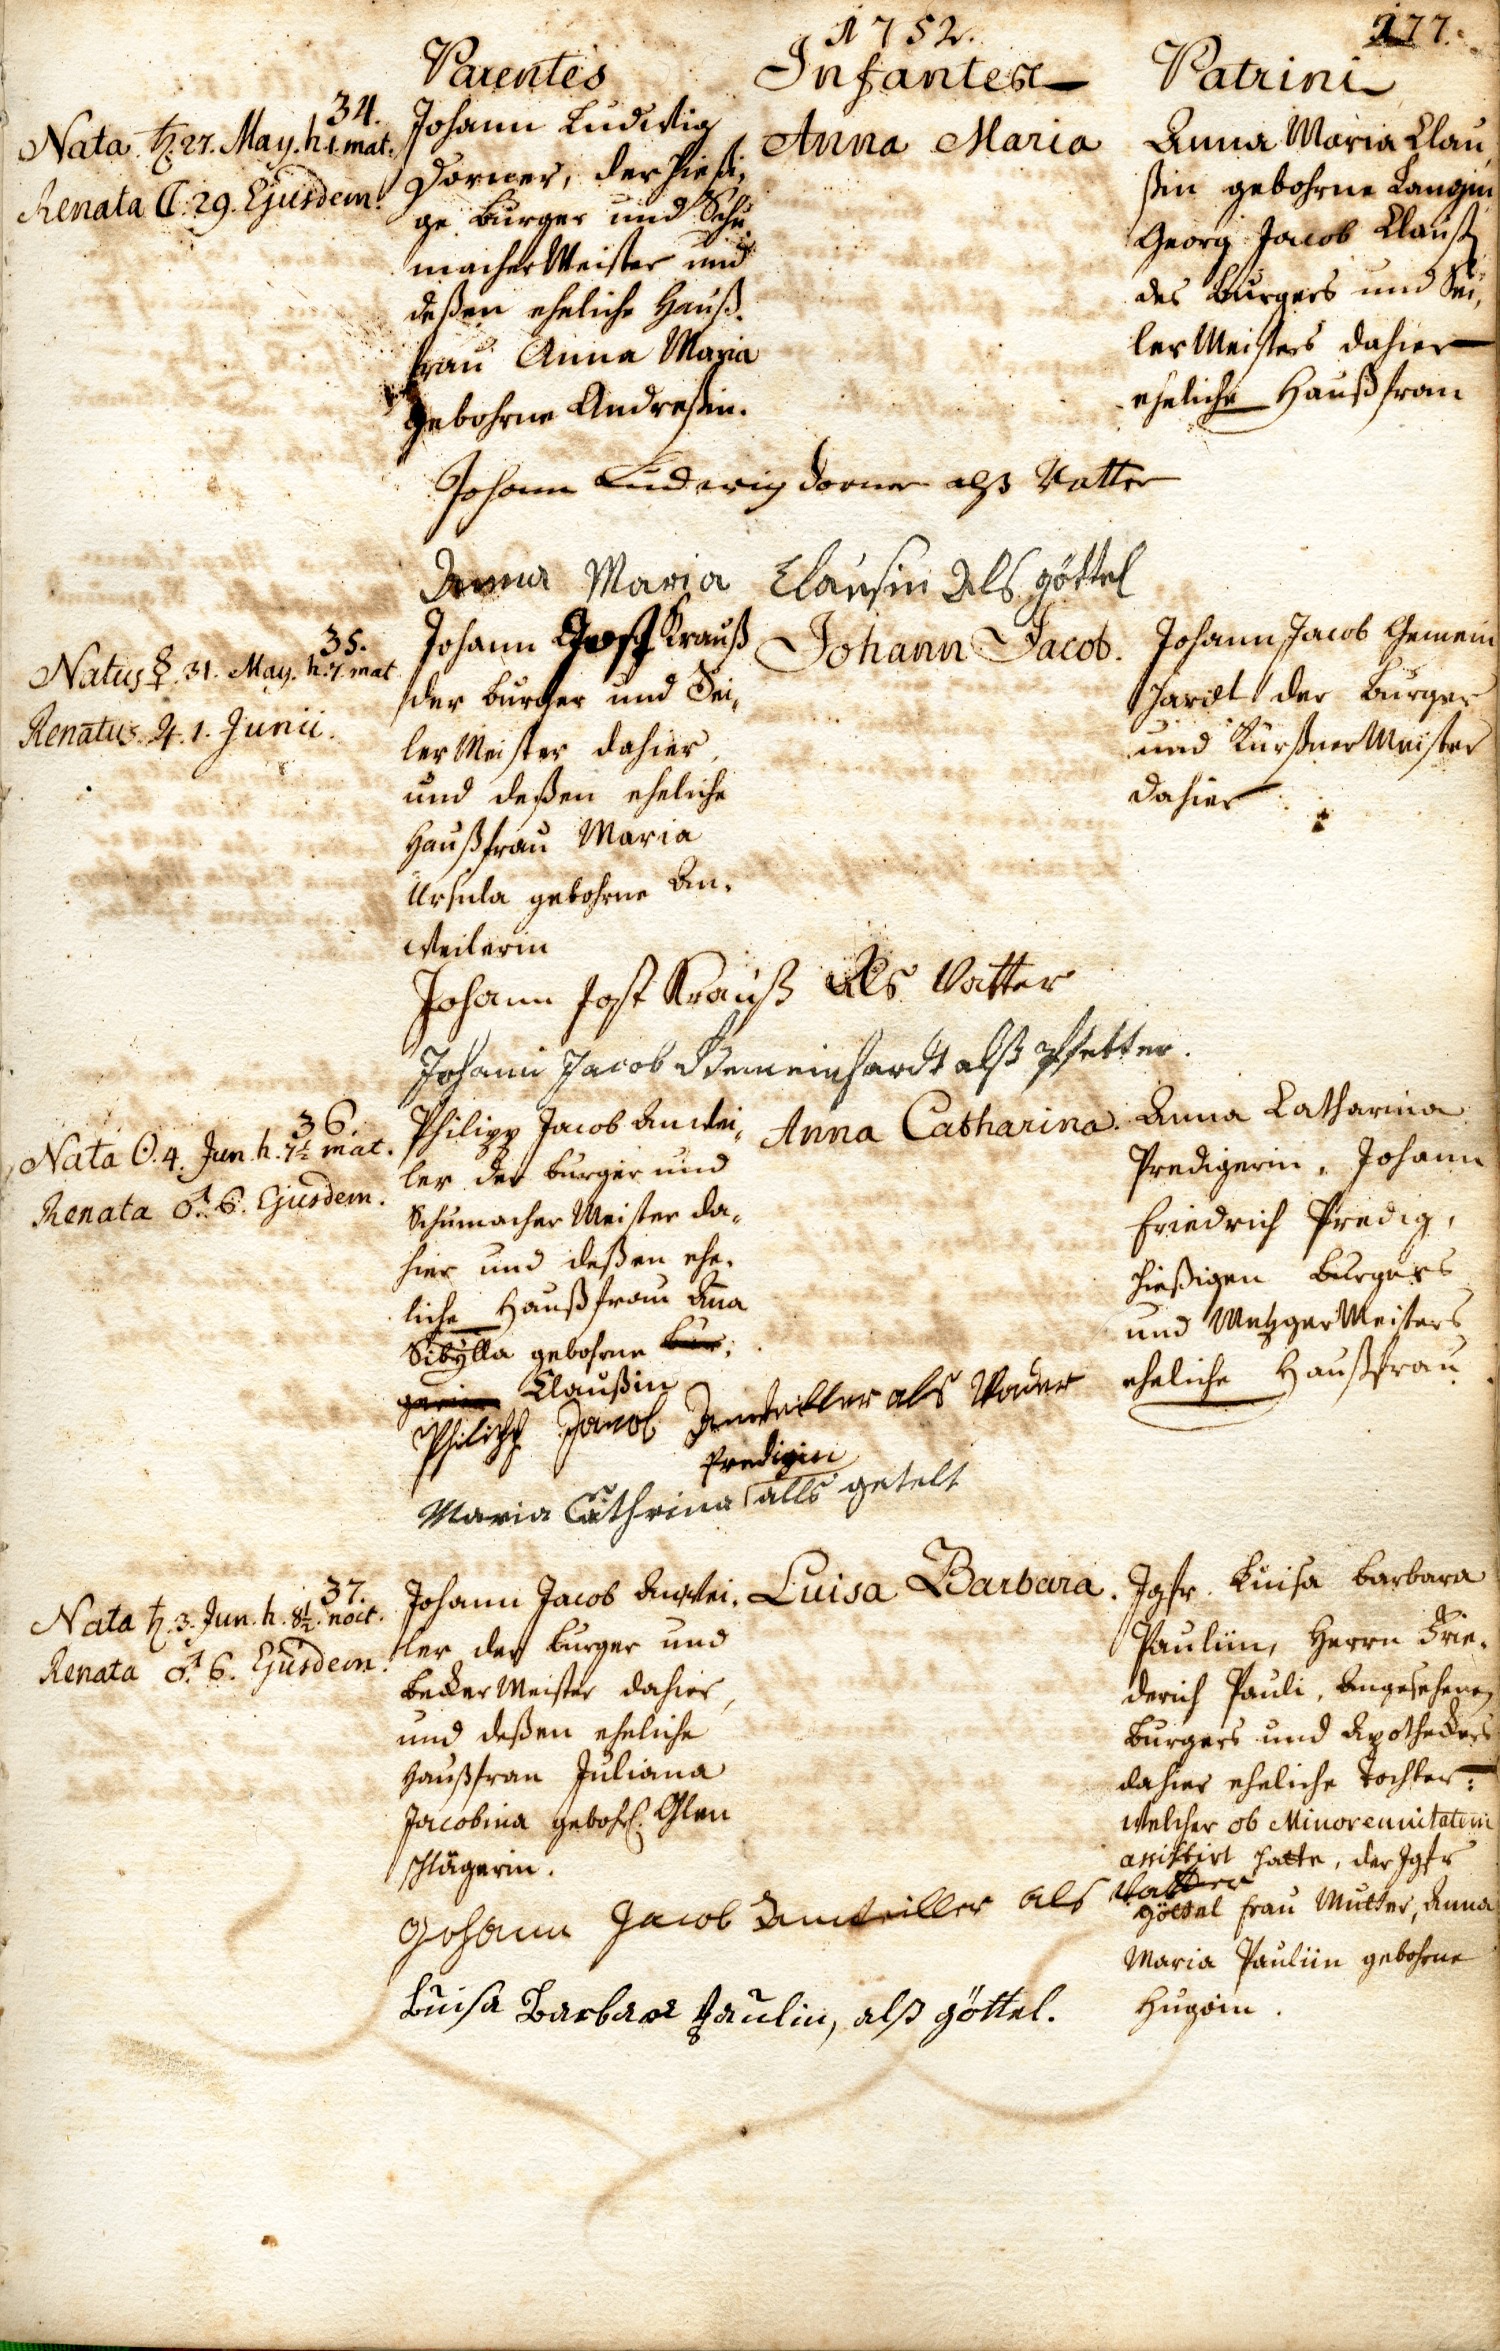 1752.
177.
Parentes
Infantes
Patrini
34.
Nata ♄. 27. May. h. 1. mat.
Renata ☾. 29. Ejusdem.
Johann Ludwig
Dorner, der hiesi,
ge Burger und Schu
macher Meister und
deßen eheliche Hauß.
frau Anna Maria
gebohrne Andreßin.
Anna Maria
Anna Maria Clau,
ßin gebohrne Langin
Georg Jacob Clauß
des Burgers und Sei,
ler Meisters dahier
eheliche Haußfrau
Johann Ludwig Dorner alß Vatter
Anna Maria Clausin Als göttel
35.
Natus ☿. 31. May. h. 7. mat
Renatus ♃. 1. Junii.
Johann Jost Krauß
der Burger und Sei,
ler Meister dahier,
und deßen eheliche
Haußfrau Maria
Ursula gebohrne An,
weilerin
Johann Jacob.
Johann Jacob Gemein
hardt der Burger
und Kürßner Meister
dahier
Johann Jost Krauß Als Vatter
Johann Jacob Gemeinhardt alß Pfetter.
36.
Nata ☉. 4. Jun. h. 7½ mat.
Renata ♂. 6. Ejusdem.
Philipp Jacob Anwei,
ler der Burger und
Schumacher Meister da,
hier und deßen ehe,
liche Haußfrau Ana
Sibÿlla gebohrne
Claußin
Anna Catharina.
Anna Catharina
Predigerin, Johann
Friedrich Predig,
hießigen Burgers
und Metzger Meisters
eheliche Haußfrau
Philipp Jacob Anweiller als Vader
Predigin
Maria Cathrina alls getelt
37.
Nata ♄. 3. Jun. h. 8½. noct.
Renata ♂. 6. Ejusdem.
Johann Jacob Anwei,
ler der Burger und
Becker Meister dahier,
und deßen eheliche
Haußfrau Juliana
Jacobina gebohr. Ohlen
schlägerin.
Luisa Barbara.
Jgfr. Luisa Barbara
Pauliin, Herrn Frie,
derich Pauli, Angesehenen
Burgers und Apotheckers
dahier eheliche Tochter:
welcher ob Minorennitatem
assistirt hatte, der Jgfr
Göttel Frau Mutter, Anna
Maria Pauliin gebohrne
Hugoin.
Johann Jacob Anweiller als Vatter
Luisa Barbara Paulin, alß göttel.